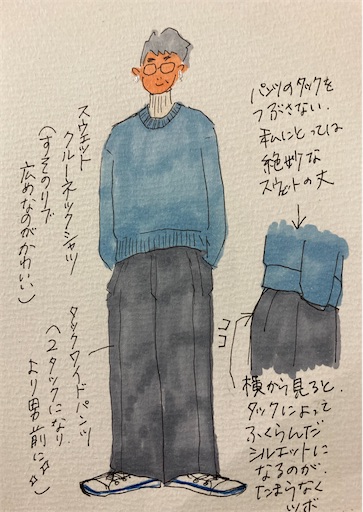 パンツのタックを
つぶさない.
私にとっては
絶妙な
スウェットの丈
スウェット
クルーネックシャツ
(すそのリブ
広めなのがかわいい)
タックワイドパンツ
(2タックになり
より男前に☆☆)
ココ
横から見ると.
タックによって
ふくらんだ
シルエットに
なるのが.
たまらなく
ツボ